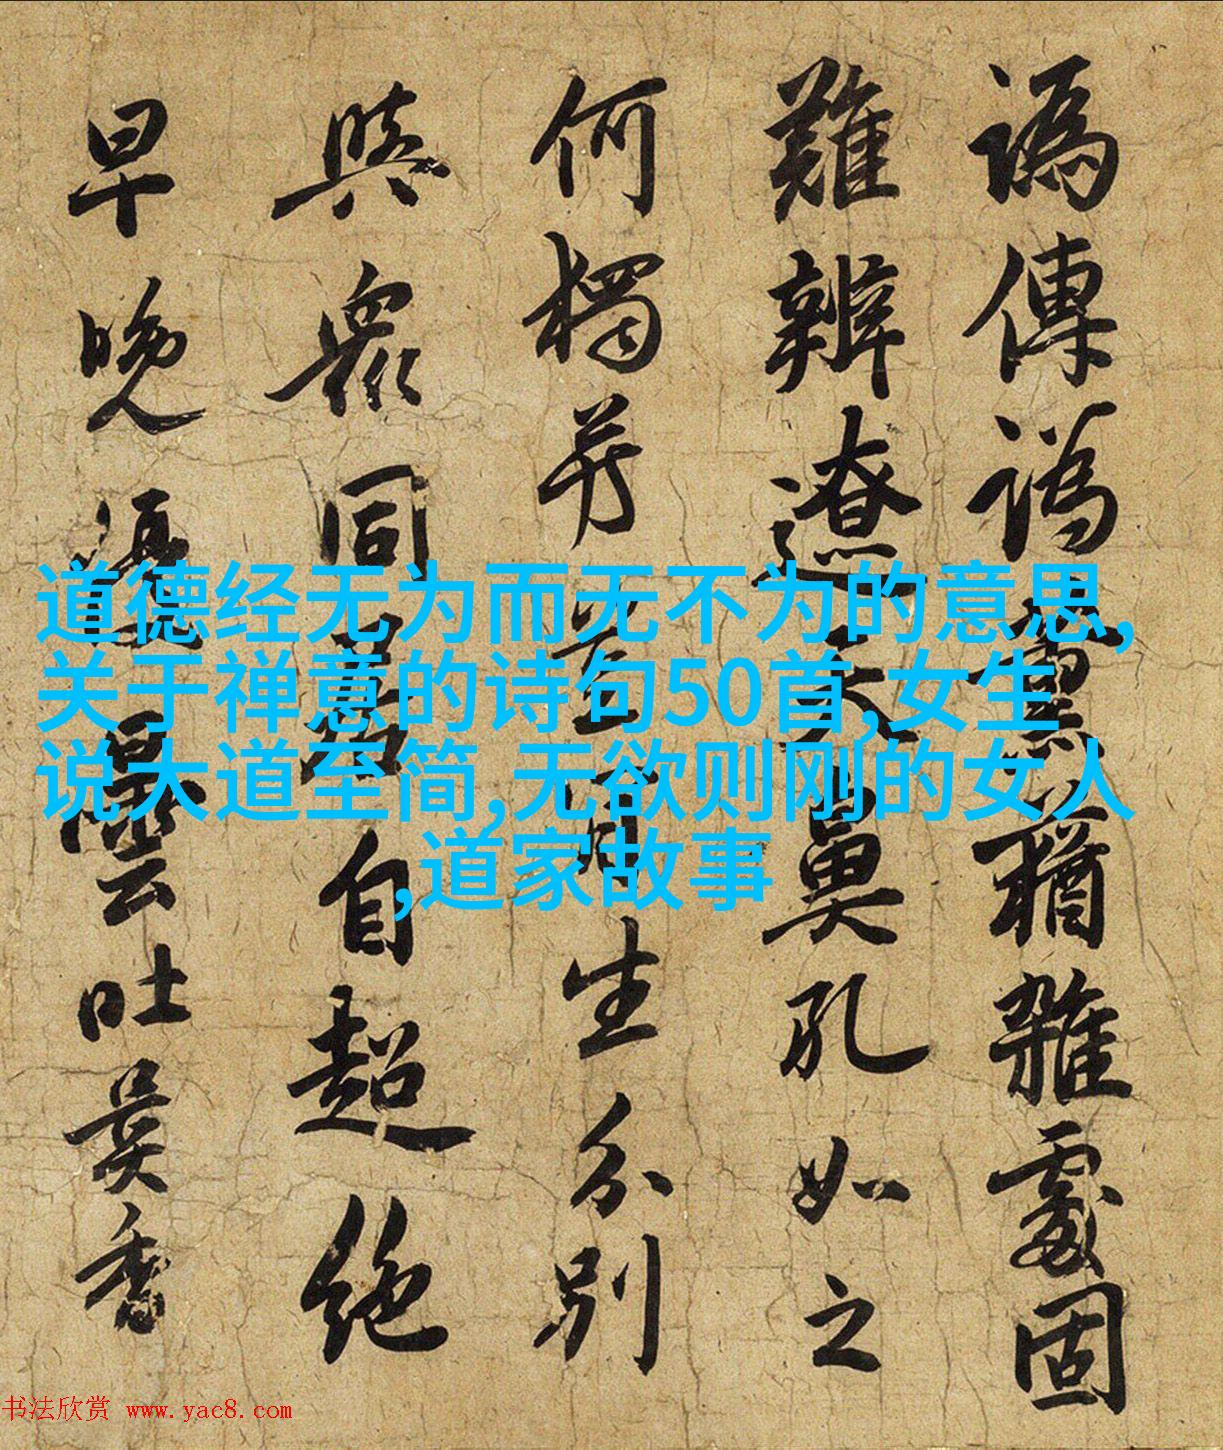 譌傳譌薰蕕雜處固
難辨遼天鼻孔如之
何獨生分別
與衆同自超絶
早晚優曇吐異香
道德经无为而无不为的意思,
关于禅意的诗句50首,女生
说大道至简,无欲则刚的女人
,道家故事
书法欣赏 www.yac8.com